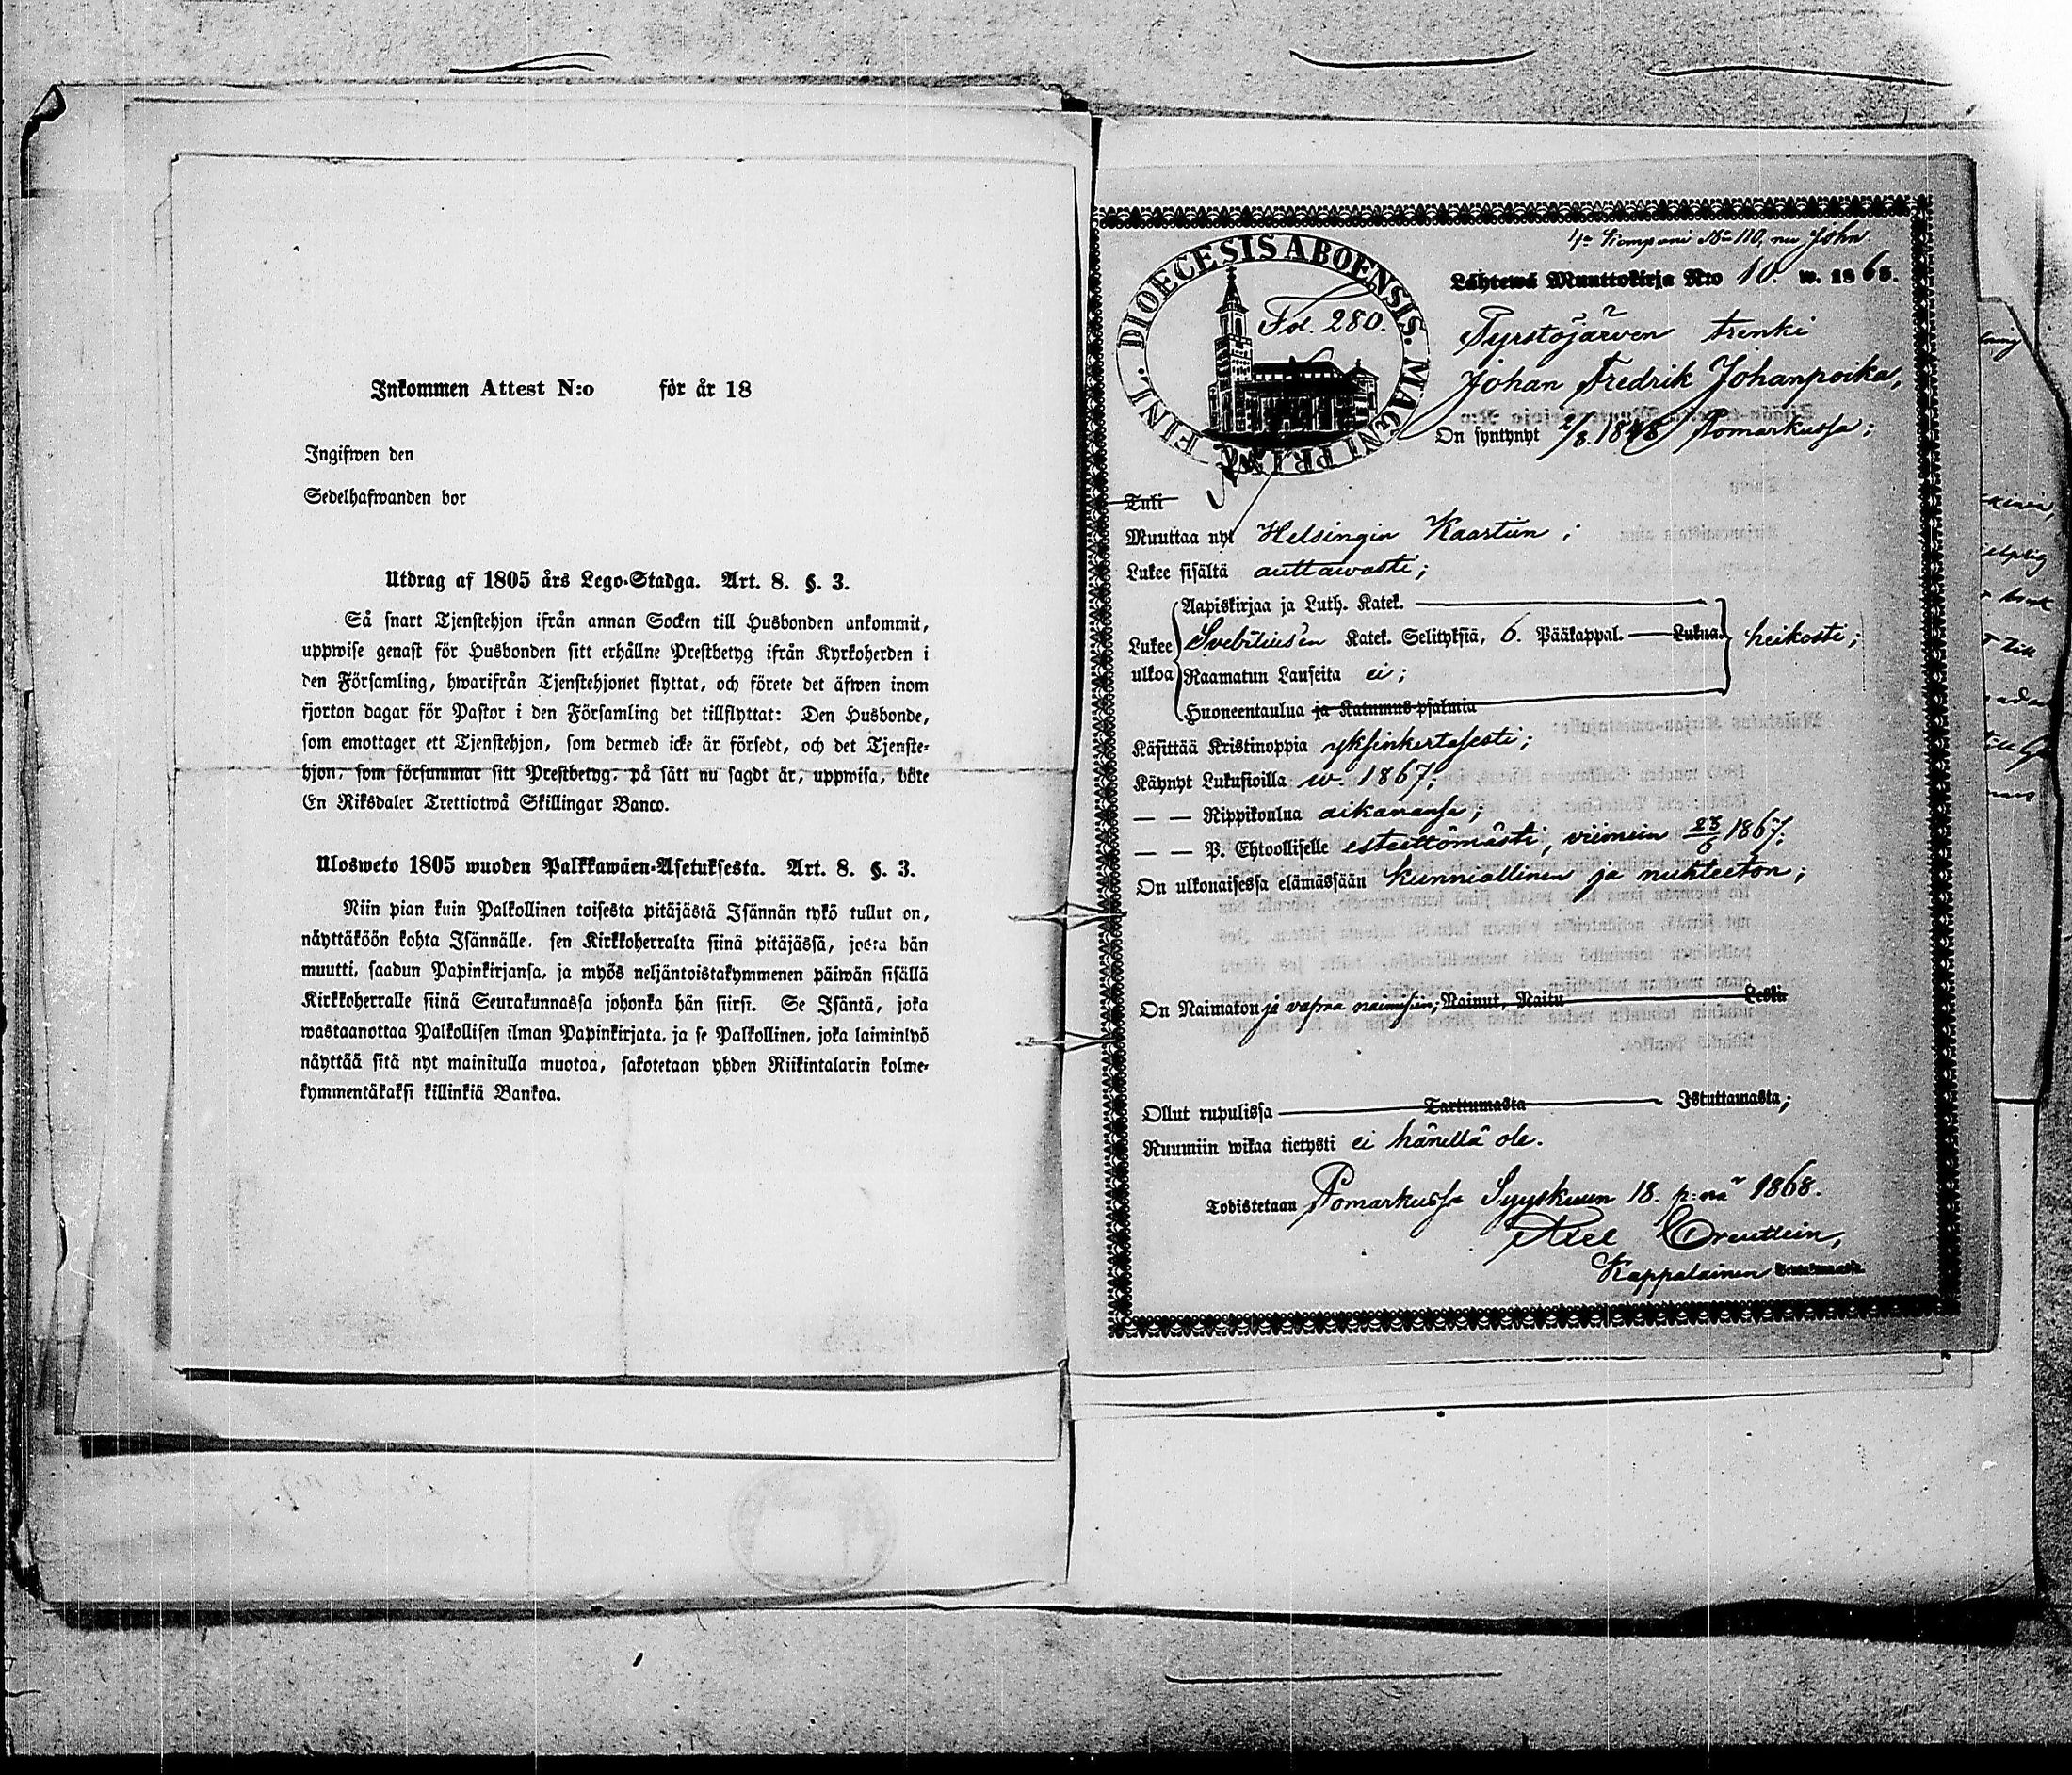 Inkommen Attest N:o för år 18
Ingifwen den
Sedelhafwanden bor
Utdrag af 1805 års Lego-Stadga. Art. 8. §. 3.
Så snart Tjenstehjon ifrån annan Socken till Husbonden ankommit,
uppwise genast för Husbonden sitt erhållne Prestbetyg ifrån Kyrkoherden i
den Församling, hwarifrån Tjenstehjonet flyttat, och förete det äfwen inom
fjorton dagar för Pastor i den Församling det tillflyttat: Den Husbonde,
som emottager ett Tjenstehjon, som dermed icke är försedt, och det Tjenste-
hjon, som försummar sitt Prestbetyg, på sätt nu sagdt är, uppwisa, böte
En Riksdaler Trettiotwå Skillingar Banco.
Ulosweto 1805 wuoden Palkkawäen-Asetuksesta. Art. 8. §. 3.
Niin pian kuin Palkollinen toisesta pitäjästä Isännän tykö tullut on,
näyttäköön kohta Isännälle, sen Kirkkoherralta siinä pitäjässä, josta hän
muutti, saadun Papinkirjansa, ja myös neljäntoistakymmenen päiwän sisällä
Kirkkoherralle siinä Seurakunnassa johonka hän siirsi. Se Isäntä, joka
wastaanottaa Palkollisen ilman Papinkirjata, ja se Palkollinen, joka laiminlyö
näyttää sitä nyt mainitulla muotoa, sakotetaan yhden Riikintalarin kolme-
kymmentäkaksi killinkiä Bankoa.
4e Kompani No 110, nu John
DIOECESIS ABOENSIS. MAGNI PRINC. FINL.
Fol. 280.
Lähtewä Muuttokirja N:o 10. w. 1868.
Tyrstöjärven trenki
Johan Fredrik Johanpoika,
On syntynyt 2/8. 1848 Pomarkussa;
Tuli
Muuttaa nyt Helsingin Kaartiin;
Lukee sisältä auttawasti;
Lukee ulkoa
Aapiskirjaa ja Luth. Katek.
Svebiliusen Katek. Selityksiä, 6. Pääkappal. Lukua. heikosti;
Raamatun Lauseita ei;
Huoneentaulua ja Katumus psalmia
Käsittää Kristinoppia yksinkertasesti;
Käynyt Lukusioilla w. 1867;
— — Rippikoulua aikanansa;
— — P. Ehtoolliselle esteettömästi, viimein 23/6 1867;
On ulkonaisessa elämässään kunniallinen ja nuhteeton;
On Naimaton ja vapaa naimisiin; Nainut, Naitu Leski
Ollut rupulissa Tarttumasta Istuttamasta;
Ruumiin wikaa tietysti ei hänellä ole.
Todistetaan Pomarkussa Syyskuun 18. p:nä 1868.
Axel Creutlein,
Kappalainen